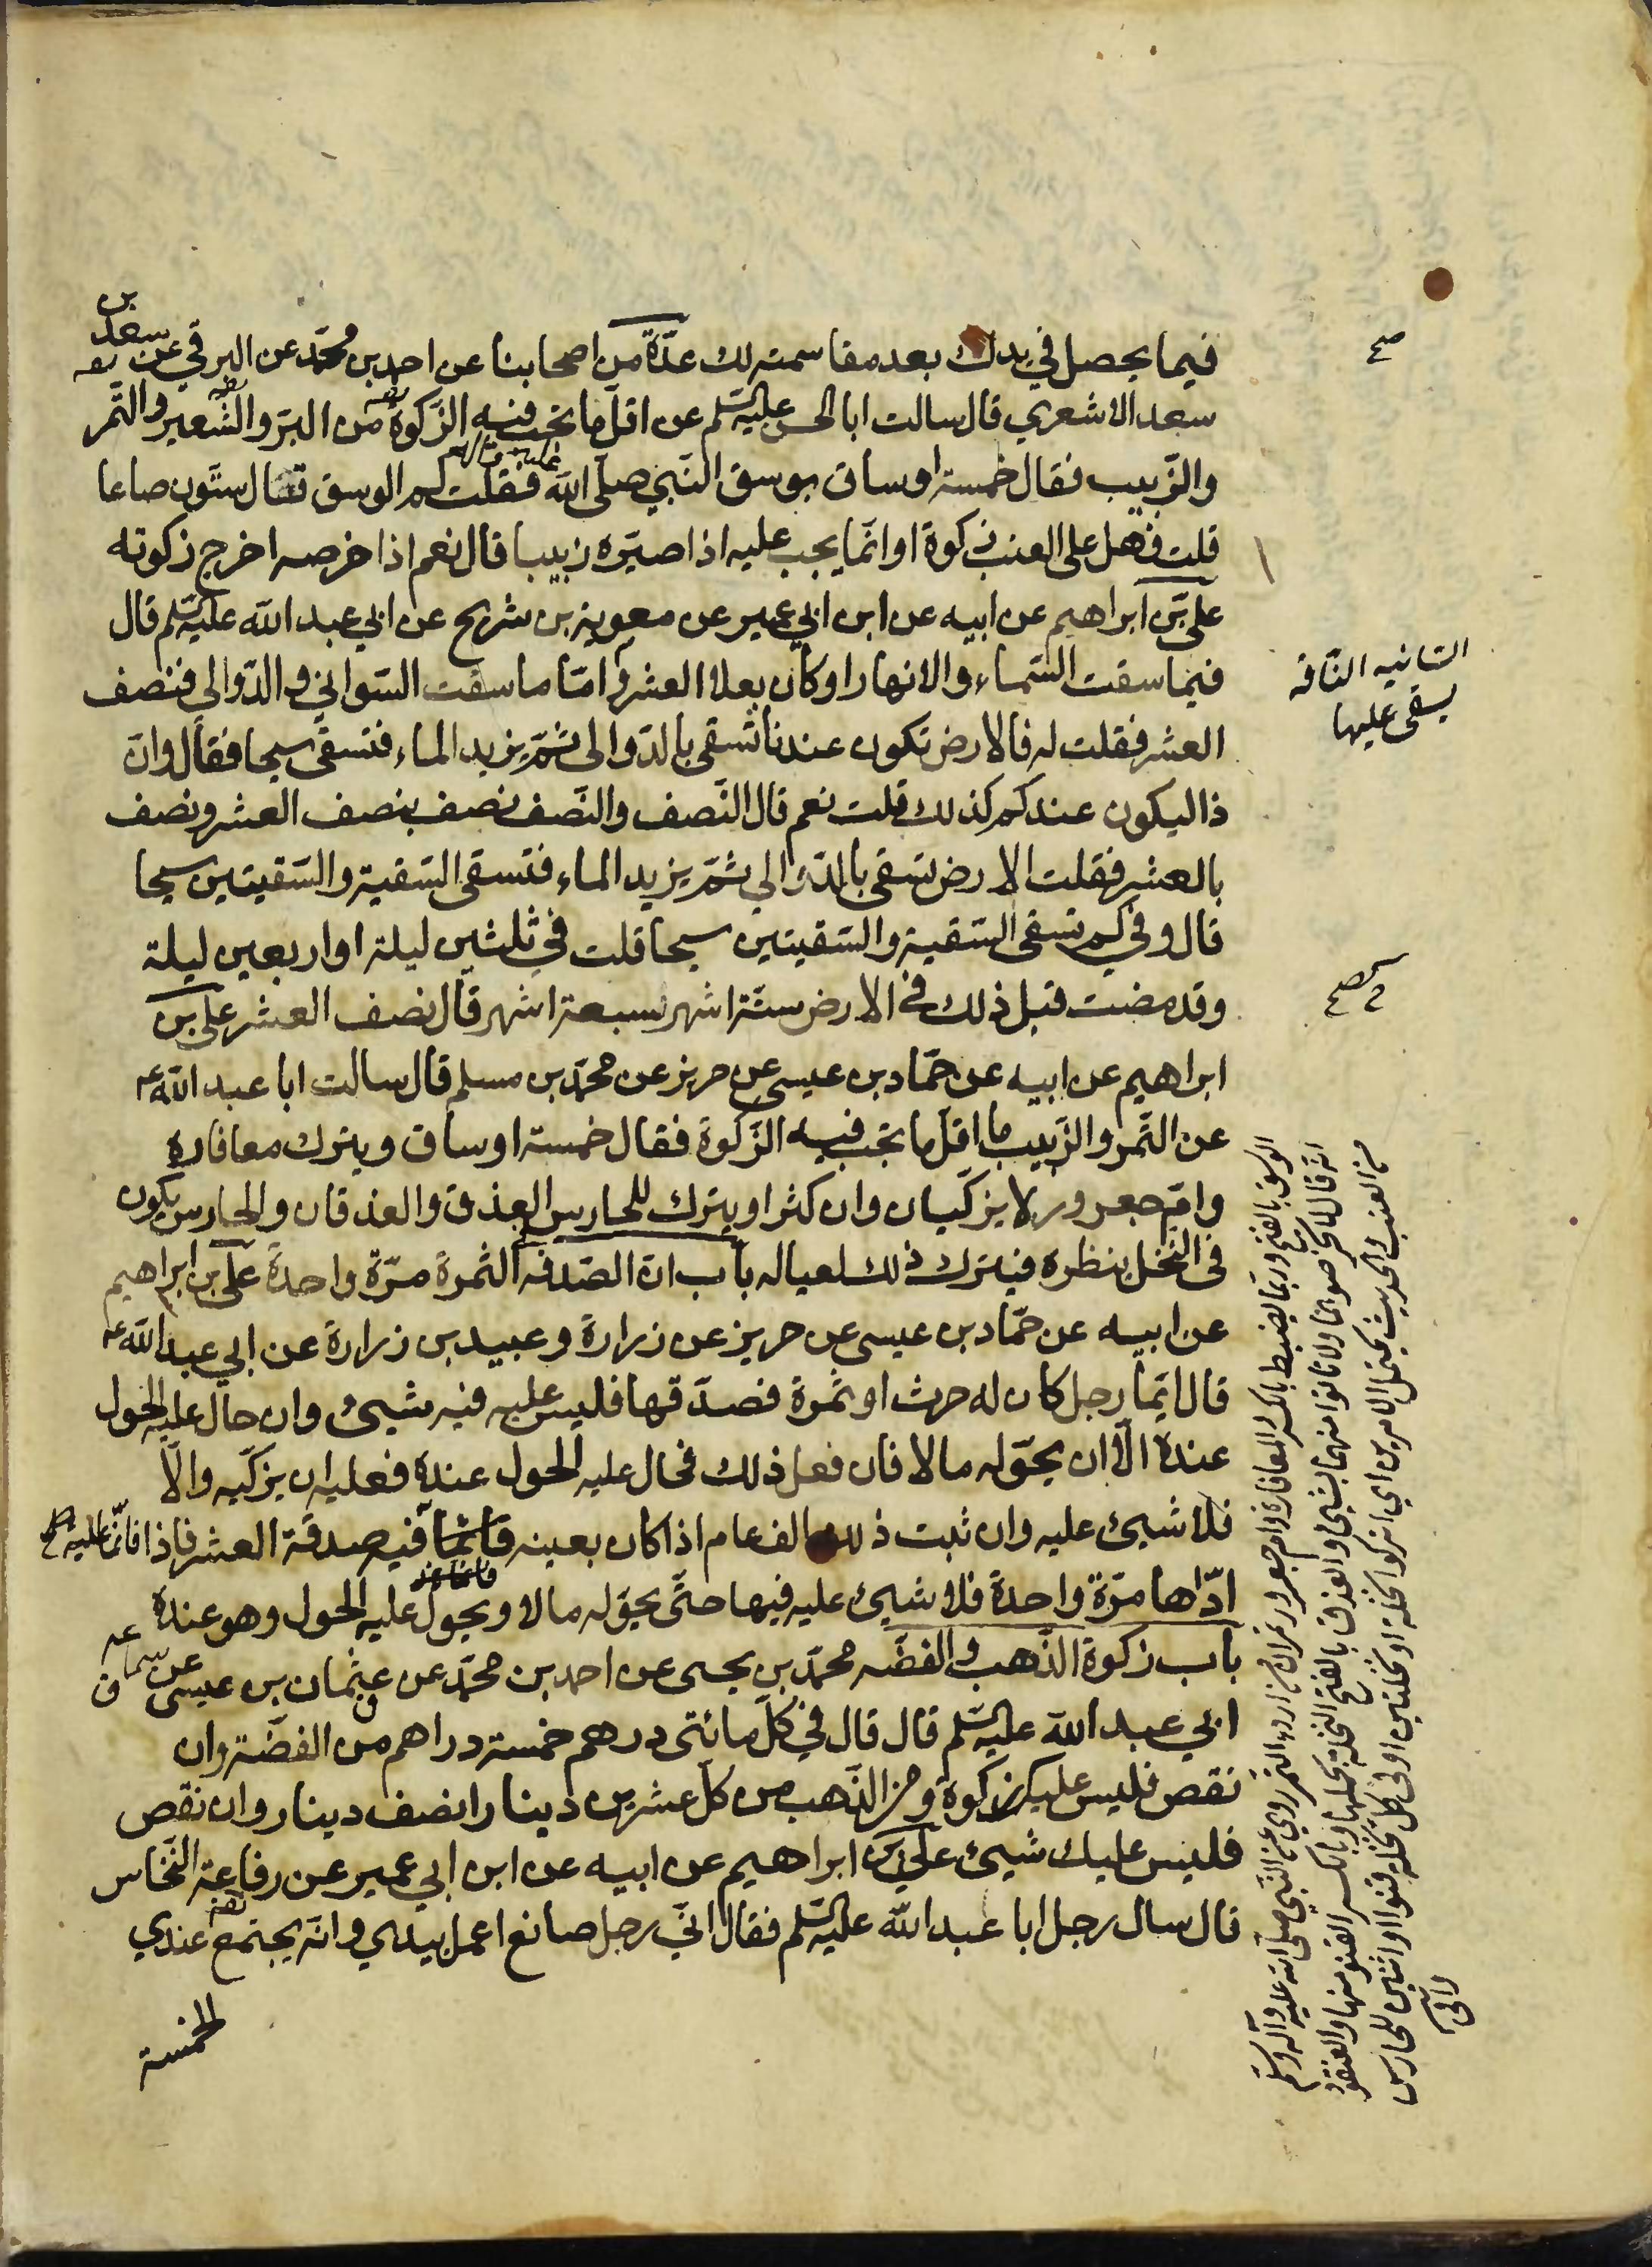 فيما يحصل في يدك بعد مقاسمته لك عدّة من اصحابنا عن احمد بن محمّد عن البرقي عن سعد بن
سعد الاشعري قال سالت ابا الحسن عليه السّلم عن اقلّ ما تجب فيه الزكوة من البرّ والشّعير والتّمر
والزّبيب فقال خمسة اوساق بوسق النّبي صلّى اللّه عليه واله فقلت كم الوسق قال ستّون صاعا
قلت فهل على العنب زكوة او انّما يجب عليه اذا صيّره زبيبا قال نعم اذا خرصه اخرج زكوته
علي بن ابراهيم عن ابيه عن ابن ابي عمير عن معوية بن شريح عن ابي عبد اللّه عليه السّلم قال
فيما سقت السّماء والانهار او كان بعلا العشر وامّا ما سقت السّواني والدّوالى فنصف
العشر فقلت له فالارض تكون عندنا تسقى بالدّوالى ثمّ يزيد الماء فتسقى سيحا فقال وانّ
ذا ليكون عندكم كذلك قلت نعم قال النّصف والنّصف نصف بنصف العشر ونصف
بالعشر فقلت الارض تسقى بالدّوالي ثمّ يزيد الماء فتسقى السّقية والسّقيتين سيحا
قال وفي كم تسقى السّقية والسّقيتين سيحا قلت في ثلثين ليلة او اربعين ليلة
وقد مضت قبل ذلك في الارض ستّة اشهر سبعة اشهر قال نصف العشر علي بن
ابراهيم عن ابيه عن حمّاد بن عيسى عن حريز عن محمّد بن مسلم قال سالت ابا عبد اللّه ع
عن التّمر والزّبيب ما اقلّ ما تجب فيه الزّكوة فقال خمسة اوساق ويترك معافاره
وامّ جعرور لا يزكّيان وان كثرا ويترك للحارس العذق والعذقان والحارس يكون
في النّخل ينظره فيترك ذلك لعياله باب انّ الصّدقه الثمرة مرّة واحدة علي بن ابراهيم
عن ابيه عن حمّاد بن عيسى عن حريز عن زرارة وعبيد بن زرارة عن ابي عبد اللّه ع
قال ايّما رجل كان له حرث او ثمرة فصدّقها فليس عليه فيه شيئ وان حال عليه الحول
عنده الّا ان يحوّله مالا فان فعل ذلك فحال عليه الحول عنده فعليه ان يزكّيه والّا
فلا شيئ عليه وان ثبت ذلك الف عام اذا كان بعينه فانّما فيه صدقة العشر فاذا فانّما عليه صح
ادّاها مرّة واحدة فلا شيئ عليه فيها حتّى يحوّله مالا ويحول عليه الحول وهو عنده
باب زكوة الذّهب والفضّه محمّد بن يحيى عن احمد بن محمّد عن عثمان بن عيسى عن سماعه
ابي عبد اللّه عليه السّلم قال قال في كلّ مائتى درهم خمسة دراهم من الفضّة وان
نقص فليس عليك زكوة ومن الذّهب من كلّ عشرين دينارا نصف دينار وان نقص
فليس عليك شيئ علي بن ابراهيم عن ابيه عن ابن ابي عمير عن رفاعة النّخاس
قال سال رجل ابا عبد اللّه عليه السّلم فقال انّي رجل صانع اعمل بيدي وانّه يجتمع عندي
الخمسة
صح
السّانيه النّاقة
يسقى عليها
الوسق بالفتح وربّما يضبط بالكسر المعافارة وام جعرور تمران من اردء التمر روي عن النّبي صلّى اللّه عليه وآله وسلم
انّه قال لا تخرصوهما ولا تاتوا منهما بشيئ والعذق بالفتح النخلة بحملها وبالكسر القنو منها والعنقود
من العنب والحديث يحتمل الامرين اي اتركوا نخلة او نخلتين او في كل نخلة قنوا او اثنين للحارس
وافى